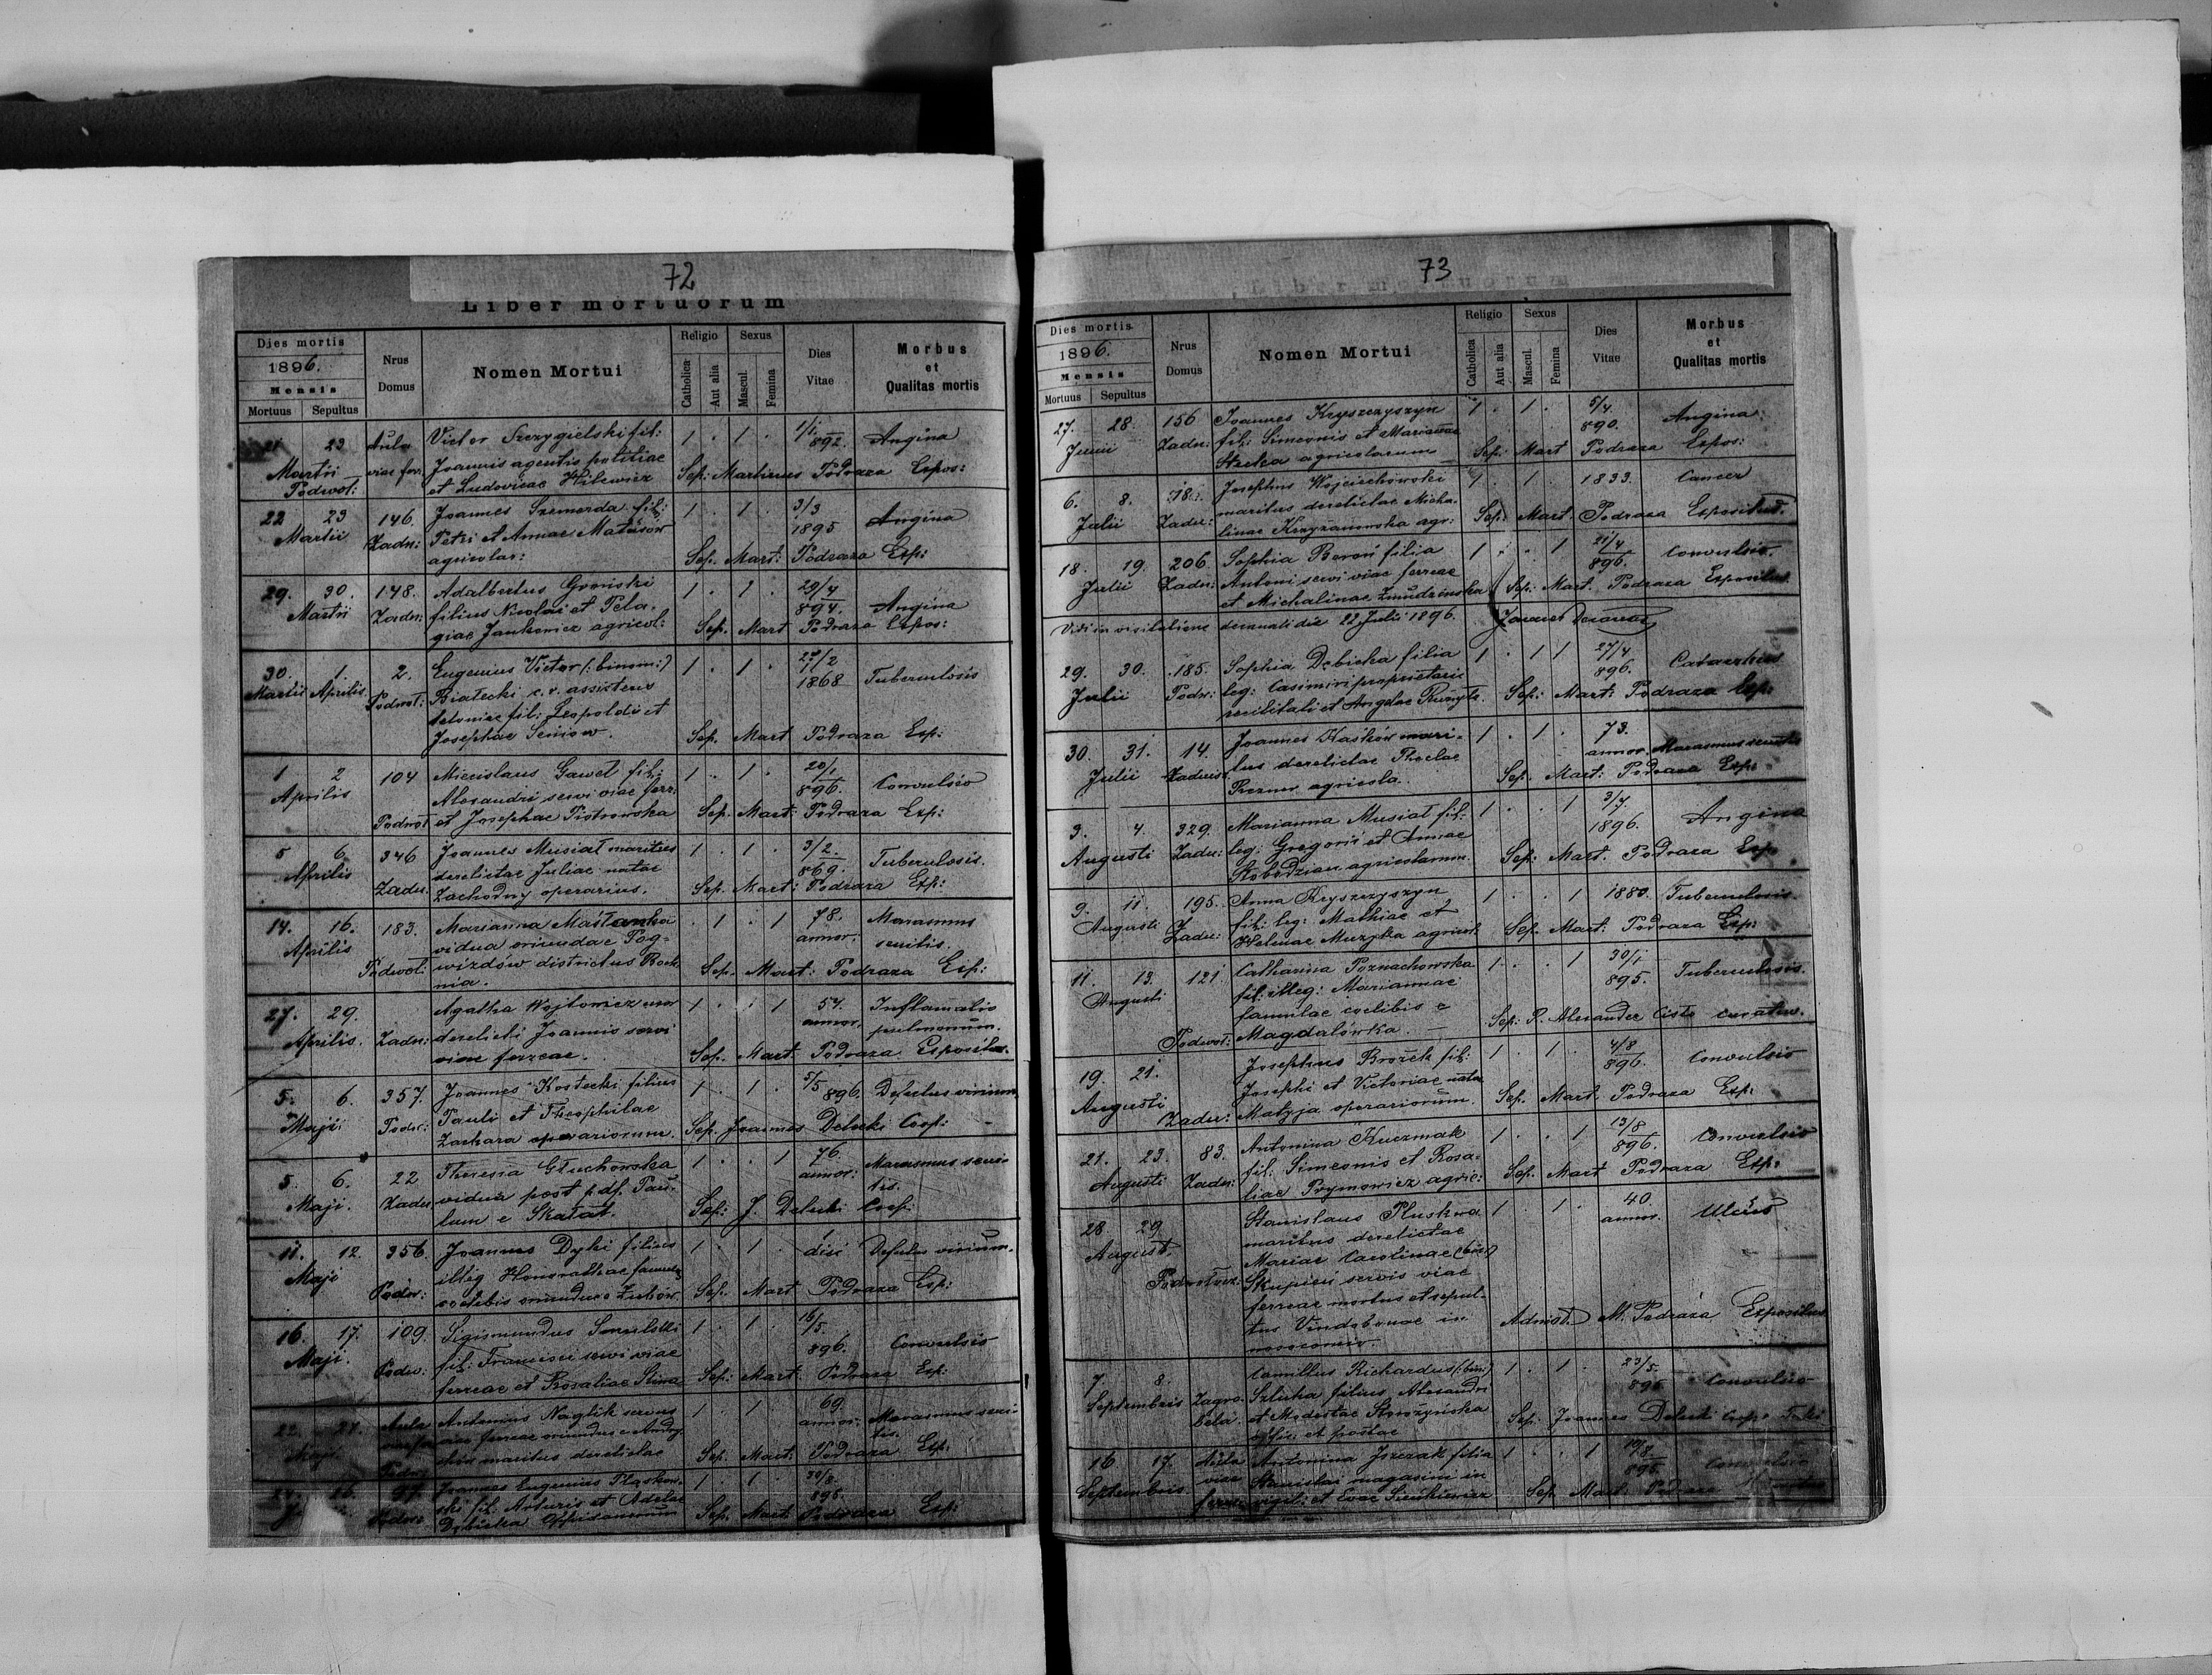 72
Liber mortuorum
Dies mortis
1896.
Mensis
Mortuus Sepultus
Nrus Domus
Nomen Mortui
Religio
Catholica Aut alia
Sexus
Mascul. Femina
Dies Vitae
Morbus et Qualitas mortis
21 23 Aula Victor Szczygielski fil: 1 . 1 . 1/1 892. Angina
Martii viae ferr. Joannis agentis politiae
Podwoł: et Ludovicae Hilewicz Sep: Martinus Podraza Expos:
22 23 146. Joannes Szemerda fil: 1 . 1 . 3/3 1895 Angina
Martii Zadn: Petri et Annae Matusów
agricolar: Sep. Mart: Podraza Exp:
29. 30. 148. Adalbertus Groński 1 . 1 . 29/4 894. Angina
Martii Zadn: filius Nicolai et Pela-
giae Jankowicz agricol: Sep. Mart Podraza Expos:
30. 1. 2. Eugenius Victor (:binom:) 1 . 1 . 27/2 1868 Tuberculosis
Martii Aprilis. Podwoł: Białecki c. r. assistens
teloniae fil: Leopoldi et
Josephae Seniow. Sep. Mart Podraza Exp:
1 2 104 Miecislaus Gaweł fil: 1 . 1 . 20/1 896. Convulsio
Aprilis Alexandri servi viae ferr:
Podwoł et Josephae Piotrowska Sep. Mart: Podraza Exp:
5 6 346 Joannes Musiał maritus 1 . 1 . 3/2. 869. Tuberculosis.
Aprilis derelictae Juliae natae
Zadn. Zachodny operarius. Sep. Mart: Podraza Exp:
14. 16. 183. Marianna Maślanka . 1 . 1 78. annor. Marasmus senilis.
Aprilis vidua oriundae Pog-
Podwoł: wizdów districtus Boch
nia. Sep. Mart: Podraza Exp:
27. 29. Agatha Wojtowicz uxor 1 . . 1 57. annor. Inflamatio pulmonum.
Aprilis. Zadn: derelicti Joannis servi
viae ferreae. Sep. Mart. Podraza Expositus.
5. 6. 357. Joannes Kostecki filius 1 . 1 . 5/5 896. Defectus virium
Maji Podw: Pauli et Theophilae
Zachara operariorum. Sep. Joannes Delecki Coop:
5. 6. 22 Theresia Głuchowska 1 . . 1 76. annor. Marasmus seni-
lis.
Maji. Zadn vidua post p. df. Pau-
lum e Skałat. Sep: J. Delecki Coop:
11. 12. 356. Joannes Dyki filius 1 . 1 . 1 diei Defectus virium.
Maji illeg Honorathae famulae
Podw: coelibis oriundae e Żuków. Sep. Mart Podraza Exp:
16. 17. 109. Sigismundus 1 . 1 . 16/5. 896. Convulsio
Maji. fil: Francisci servi viae
Podw: ferreae et Rosaliae Sep: Mart Podraza Exp:
22. 24. Aula Antonius Naglik servus 1 . 1 . 69. annor. Marasmus seni-
lis.
Maji viae ferreae oriundus e Andry-
maritus derelictae Sep. Mart: Podraza Exp:
97. Joannes Eugenius 1 . 1 . 30/8. 895.
ski fil. Arturis et Adelae
Podw: Dębicka Oppidanorum Sep. Mart: Podraza Exp:
73
Dies mortis
1896.
Mensis
Mortuus Sepultus
Nrus Domus
Nomen Mortui
Religio
Catholica Aut alia
Sexus
Mascul. Femina
Dies Vitae
Morbus et Qualitas mortis
27. 28. 156 Joannes Kryszczyszyn 1 . 1 . 5/4. 890. Angina
Junii Zadn: fil: Simeonis et Mariannae
agricolarum Sep: Mart Podraza Expos:
6. 8. 18 Josephus Wojciechowski 1 . 1 . 1833. Cancer
Julii Zadn: maritus derelictae Micha-
linae Krzyżanowska agr: Sep: Mart. Podraza Expositus.
18. 19. 206. Sophia Baroń filia 1 . . 1 21/4 896. Convulsio.
Julii Zadn: Antoni servi viae ferreae
et Michalinae Żmudzińska Sep: Mart. Podraza Expositus
Vidi in visitatione decanali die 22 Julii 1896. Decanus
29. 30. 185. Sophia Dębicka filia 1 . 1 1 27/4 896. Catarrhus
Julii Podw: leg: Casimiri proprietarii
realitatis et Angelae Sep: Mart: Podraza Exp:
30. 31. 14. Joannes Haśków mari- 1 . 1 . 73. annor. Marasmus senilis
Julii Zadnisz. tus derelictae Theclae
Prezner agricola. Sep. Mart: Podraza Exp:
3. 4. 329. Marianna Musiał fil: 1 . . 1 3/7. 1896. Angina
Augusti Zadn: leg: Gregorii et Annae
Słobodzian agricolarum. Sep: Mart. Podraza Exp.
9. 11. 195. Anna Kryszczyszyn 1 . . 1 1880. Tuberculosis.
Augusti Zadn: fil: leg: Mathiae et
Helenae Muzyka agricol. Sep. Mart: Podraza Exp:
11. 13. 121. Catharina Poznachowska 1 . . 1 30/1 895. Tuberculosis.
Augusti fil: illeg: Mariannae
famulae coelibis e
Podwoł: Magdalówka. Sep: P. Alexander Cisło curatus.
19. 21. Josephus Brożek fil: 1 . 1 . 4/8 896. Convulsio
Augusti Josephi et Victoriae natae
Zadn: Matyja operariorum. Sep. Mart. Podraza Exp:
21. 23. 83. Antonina Kuczmak 1 . . 1 13/8 896. Convulsio
Augusti Zadn: fil: Simeonis et Rosa-
liae Prymowicz agric: Sep. Mart Podraza Exp:
28 29 Stanislaus Pluskwa 1 . 1 . 40 annor. Ulcus
August. maritus derelictae
Mariae Carolinae (bin)
Podwołocz: Skupień servis viae
ferreae mortus et sepul-
tus Vindobonae in
nosocomio. Adnot. M. Podraza Expositus
7. 8. Camillus Richardus (:bin:) 1 . 1 . 23/5. 896 Convulsio
Septembris Zagro- Szluka filius Alexandri
bela. et Modestae
offic: et postae Sep. Joannes Delecki Coop:
16 17. Aula Antonina filia 1 . . 1 19/8. 895. Convulsio
Septembris viae Stanislai magasini in
ferr: vigil: et Evae Sienkiewicz Sep. Mart: Podraza